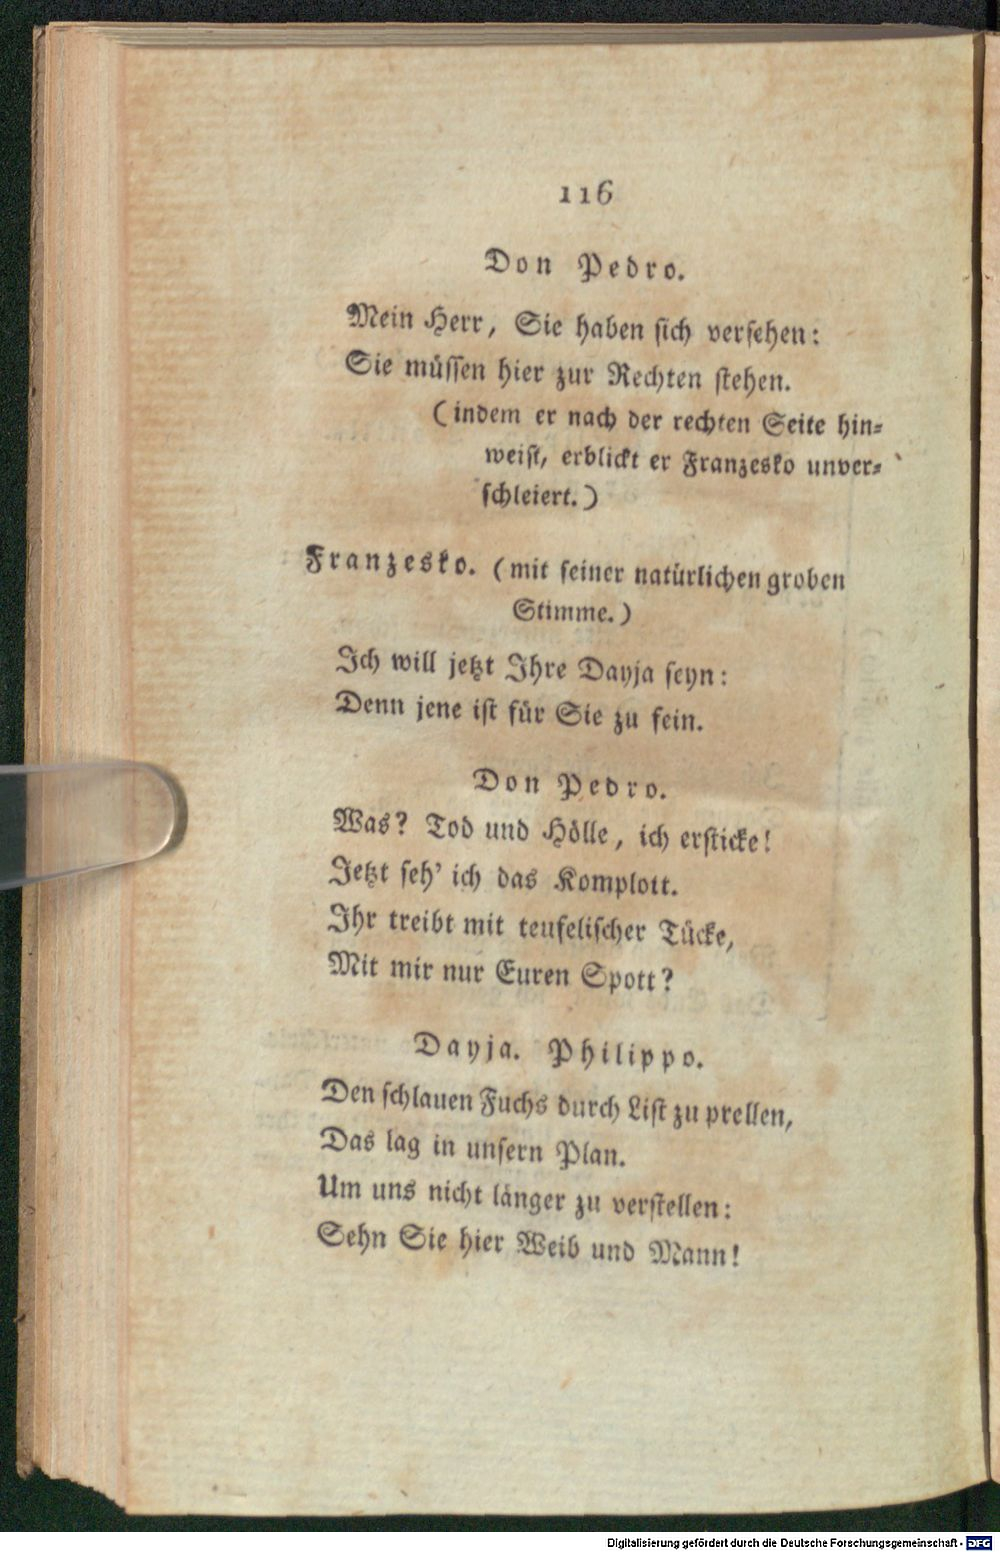 116
Don Pedro.
Mein Herr, Sie haben sich versehen:
Sie müssen hier zur Rechten stehen.
(indem er nach der rechten Seite hin-
weist, erblickt er Franzesko unver-
schleiert.)
Franzesko. (mit seiner natürlichen groben
Stimme.)
Ich will jetzt Ihre Dayja seyn:
Denn jene ist für Sie zu fein.
Don Pedro.
Was? Tod und Hölle, ich ersticke!
Jetzt seh' ich das Komplott.
Ihr treibt mit teufelischer Tücke,
Mit mir nur Euren Spott?
Dayja. Philippo.
Den schlauen Fuchs durch List zu prellen,
Das lag in unsern Plan.
Um uns nicht länger zu verstellen:
Sehn Sie hier Weib und Mann!
Digitalisierung gefördert durch die Deutsche Forschungsgemeinschaft - DFG